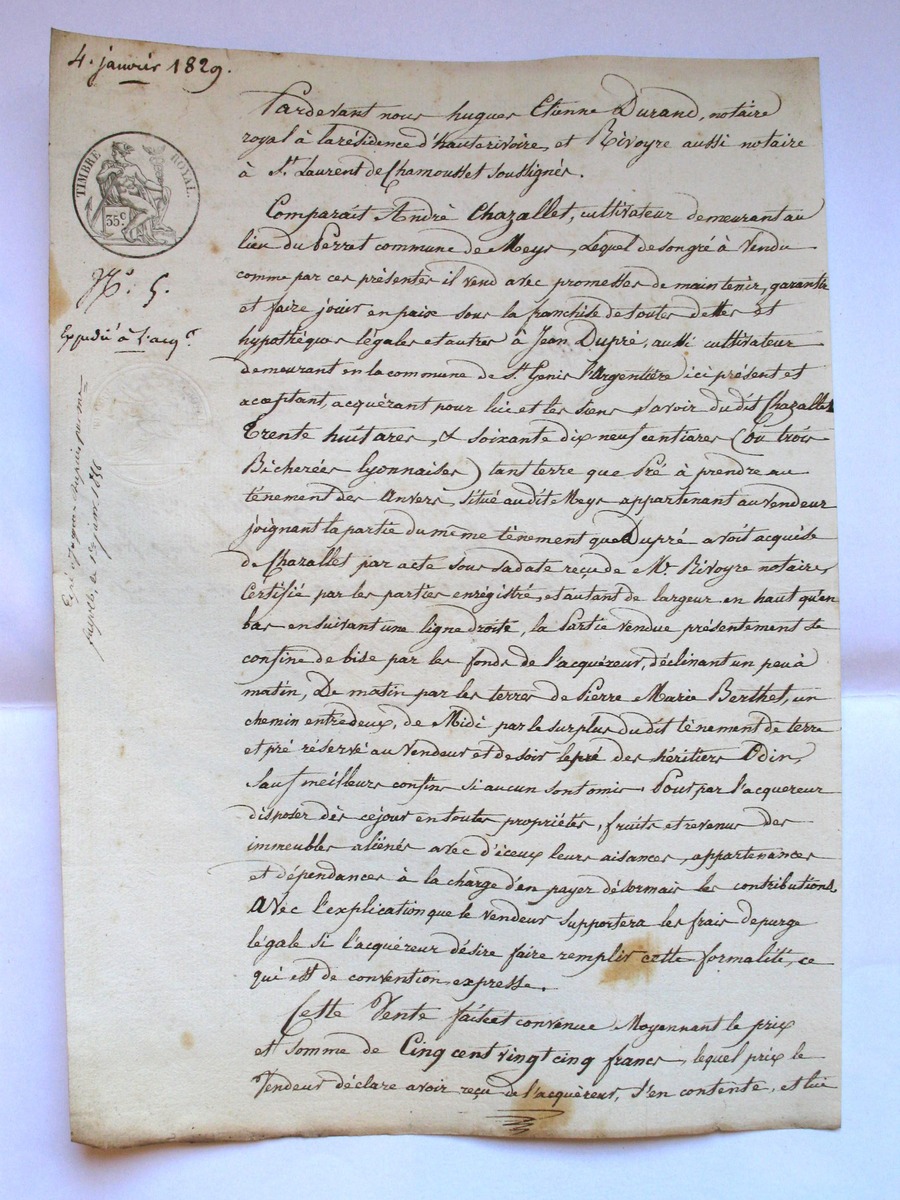 4. janvier 1829.
TIMBRE ROYAL.
35 c
N.° 5.
Expédié à l'acq.r
Pardevant nous hugues Etienne Durand, notaire
royal à la résidence d'hauterivoire, et Rivoyre aussi notaire
à St. Laurent de Chamousset soussignés.
Comparait André Chazallet, cultivateur demeurant au
lieu du Perret commune de Meys, Lequel de son gré à Vendu
comme par ces présentes il vend avec promesses de maintenir, garantir
et faire jouir en paix sous la franchise de toutes dettes et
hypothèques légales et autres à Jean Dupré, aussi cultivateur
demeurant en la commune de St. Genis l'Argentière ici présent et
acceptant, acquérant pour lui et les siens savoir du dit Chazallet
Trente huit ares, & soixante dix neuf centiares (ou trois
Bicherées Lyonnaises) tant terre que Pré à prendre au
ténement des Anvers, situé au dit Meys appartenant au vendeur
joignant la partie du même ténement que Dupré avoit acquise
de Chazallet par acte sous sa date reçu de Me. Rivoyre notaire,
Certifié par les parties enrégistré, et autant de largeur en haut qu'en
bas en suivant une ligne droite, la Partie vendue présentement se
confine de bise par les fonds de l'acquéreur, déclinant un peu à
matin, De matin par les terres de Pierre Marie Berthet, un
chemin entredeux, de Midi par le surplus du dit ténement de terre
et pré réservé au Vendeur et de soir le pré des héritiers Odin,
Sauf meilleurs confins si aucun sont omis. Pour par l'acquereur
disposer dès ce jour en toutes propriétés, fruits et revenus des
immeubles aliénés avec d'iceux leurs aisances, appartenances
et dépendances à la charge d'en payer désormais les contributions.
Avec l'explication que le vendeur supportera les frais de purge
légale si l'acquéreur désire faire remplir cette formalité, ce
qui est de convention expresse.
Cette Vente faite et convenue Moyennant le prix
et somme de Cinq cent vingt cinq francs, lequel prix le
Vendeur déclare avoir reçu de l'acquéreur, s'en contente, et lui